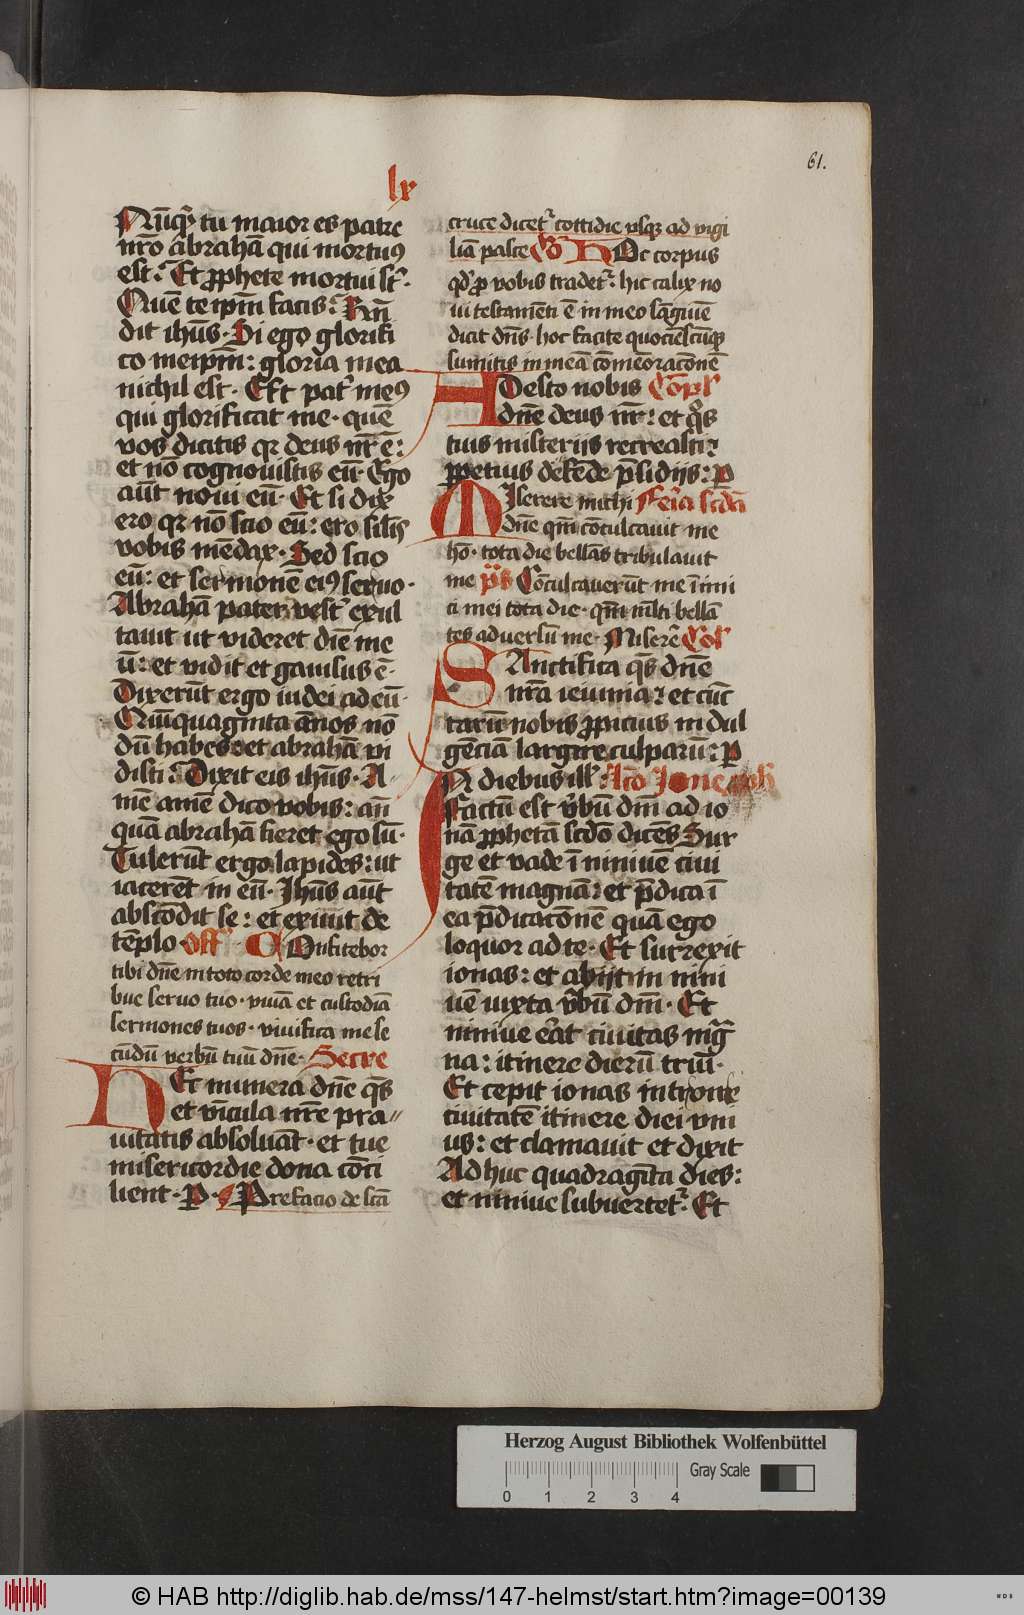 61.
lx
Nūqd tu maior es patre
nr̄o abrahā qui mortuꝰ
est. Et ꝓphete mortui st̄.
Quē te ip̄m facis. Rn̄
dit ihūs. Si ego glorifi
co meip̄m: gloria mea
nichil est. Est pat̄ meꝰ
qui glorificat me. quē
vos dicitis qr deus nr̄ ē:
et nō cognouistis eū. Ego
aūt noui eū. Et si dix
ero qr nō scio eū: ero silis
vobis mēdax. Sed scio
eū: et sermonē eiꝰ seruo.
Abrahā pater vest̄ exul
tauit ut videret diē me
ū: et vidit et gauisus ē.
Dixerūt ergo iudei ad eū.
Quīquaginta annos nō
dū habes et abrahā vi
disti. Dixit eis ihūs. A-
mē amē dico vobis: an̄
quā abrahā fieret ego sū.
Tulerūt ergo lapides: ut
iacerēt in eū. Ihūs aūt
abscōdit se: et exiuit de
tēplo. off Cōfitebor
tibi dn̄e in toto corde meo retri
bue seruo tuo. viuā et custodiā
sermones tuos. viuifica me se
cūdū verbū tuū dn̄e. Secre
Hec munera dn̄e qs̄
et vīcula nr̄e pra-
uitatis absoluāt. et tue
misericordie dona cōci
lient. P. Prefacio de scā
cruce dicet̄ cottidie vsqꝫ ad vigi
liā pasce Cō Hoc corpus
qd̄ ꝓ vobis tradet̄: hic calix no
ui testamēti ē in meo sāguīe
dicit dn̄s. hoc facite quociēscūqꝫ
sumitis in meā cōmēoracōnē
Adesto nobis Cōpl
dn̄e deus nr̄: et qs̄
tuis misterijs recreasti:
ꝑpetuis defēde p̄sidijs: P
Miserere michi Feria scdā
dn̄e qm̄ cōculcauit me
hō. tota die bellās tribulauit
me p̄s Cōculcauerūt me īimi
ci mei tota die. qm̄ ml̄ti bellā
tes aduersū me. Miserē Col
Sanctifica qs̄ dn̄e
nr̄a ieiunia: et cūc
tarū nobis ꝓpicius in dul
gēciā largire culparū: P
In diebus ill Lc̄o Jone ꝓph
Factū est v̄bū dn̄i ad io
nā ꝓphetā scdo dicēs Sur
ge et vade ī niniuē ciui
tatē magnā: et p̄dica ī
ea p̄dicacōnē quā ego
loquor ad te. Et surrexit
ionas: et abijt in nini
uē iuxta v̄bū dn̄i. Et
niniue erat ciuitas mḡ
na: itinere dierū triū.
Et cepit ionas introire
ciuitatē itinere diei vni
us: et clamauit et dixit
Adhuc quadragīta dies:
et niniue subuertet̄. Et
Herzog August Bibliothek Wolfenbüttel
Gray Scale
0 1 2 3 4
© HAB http://diglib.hab.de/mss/147-helmst/start.htm?image=00139